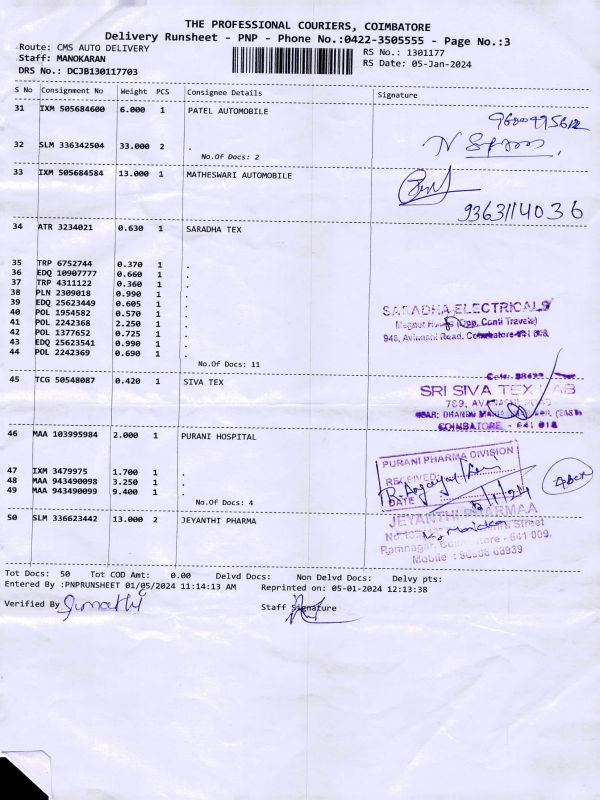 THE PROFESSIONAL COURIERS, COIMBATORE
Delivery Runsheet - PNP - Phone No.:0422-3505555 - Page No.:3
Route: CMS AUTO DELIVERY
RS No.: 1301177
Staff: MANOKARAN
RS Date: 05-Jan-2024
DRS No.: DCJB130117703
S No Consignment No Weight PCS Consignee Details Signature
31 IXM 505684600 6.000 1 PATEL AUTOMOBILE
32 SLM 336342504 33.000 2 .
No.Of Docs: 2
33 IXM 505684584 13.000 1 MATHESWARI AUTOMOBILE
9363114036
34 ATR 3234021 0.630 1 SARADHA TEX
35 TRP 6752744 0.370 1 .
36 EDQ 10907777 0.660 1 .
37 TRP 4311122 0.360 1 .
38 PLN 2309018 0.990 1 .
39 EDQ 25623449 0.605 1 .
40 POL 1954582 0.570 1 .
41 POL 2242368 2.250 1 .
42 POL 1377652 0.725 1 .
43 EDQ 25623541 0.990 1 .
44 POL 2242369 0.690 1 .
SARADHA ELECTRICALS
(Opp. Conti Travels)
948, Avinashi Road, Coimbatore
No.Of Docs: 11
45 TCG 50548087 0.420 1 SIVA TEX
SRI SIVA TEX
789,
COIMBATORE - 641 018
46 MAA 103995984 2.000 1 PURANI HOSPITAL
47 IXM 3479975 1.700 1 .
48 MAA 943490098 3.250 1 .
49 MAA 943490099 9.400 1 .
No.Of Docs: 4
PURANI PHARMA DIVISION
RECEIVED
DATE
50 SLM 336623442 13.000 2 JEYANTHI PHARMA
JEYANTHI PHARMAA
Street
Ramnagar, Coimbatore - 641 009.
Mobile :
Tot Docs: 50 Tot COD Amt: 0.00 Delvd Docs: Non Delvd Docs: Delvy pts:
Entered By :PNPRUNSHEET 01/05/2024 11:14:13 AM Reprinted on: 05-01-2024 12:13:38
Verified By Sumathi
Staff Signature